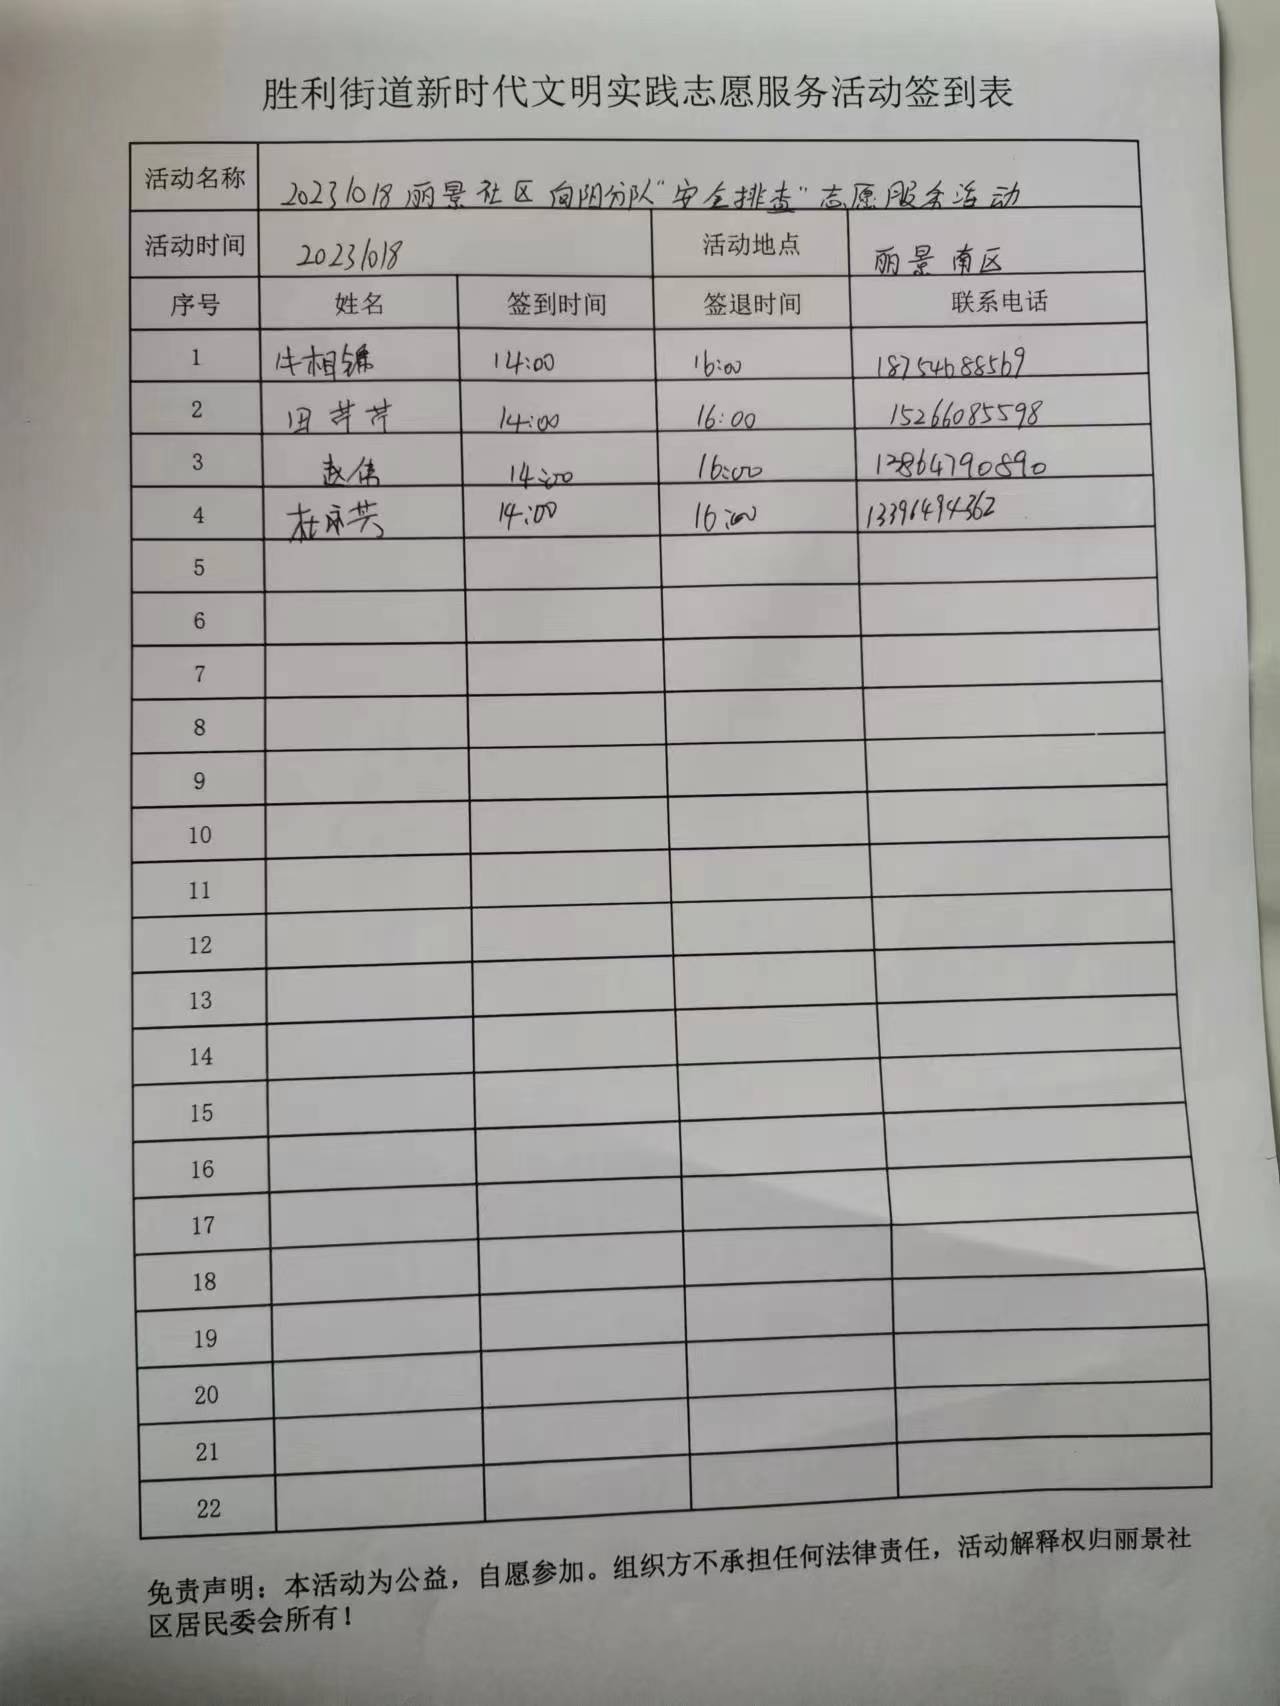 胜利街道新时代文明实践志愿服务活动签到表
活动名称 20231018丽景社区向阳分队"安全排查"志愿服务活动
活动时间 20231018 活动地点 丽景南区
序号 姓名 签到时间 签退时间 联系电话
1 牛相镛 14:00 16:00 18754688569
2 田芹芹 14:00 16:00 15266085598
3 赵伟 14:00 16:00 12864790890
4 杜丽英 14:00 16:00 13396494362
5
6
7
8
9
10
11
12
13
14
15
16
17
18
19
20
21
22
免责声明：本活动为公益，自愿参加。组织方不承担任何法律责任，活动解释权归丽景社
区居民委会所有！